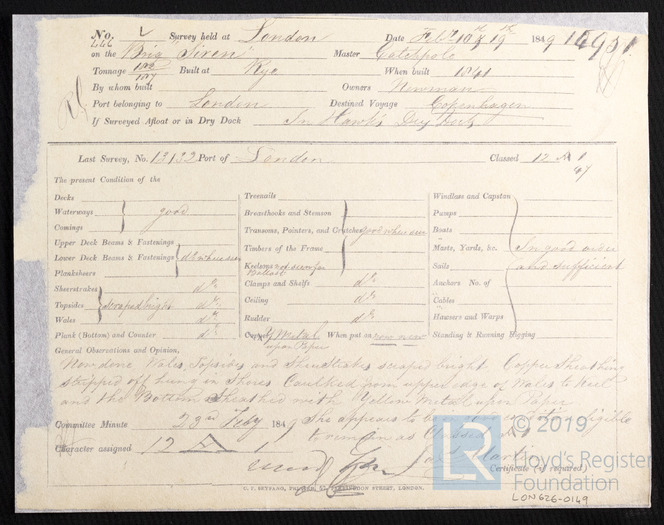 No. Survey held at London Date Feb 10th & 19th 1849 16951
666
on the Brig "Siren" Master Catchpole
Tonnage Built at Rye When built 1841
By whom built Owners Newman
Port belonging to London Destined Voyage Copenhagen
If Surveyed Afloat or in Dry Dock In Hawks Dry Dock
Last Survey, No. 13132 Port of London Classed 12 A 1
47
The present Condition of the
Decks
Waterways good
Comings
Upper Deck Beams & Fastenings
Lower Deck Beams & Fastenings do where seen
Planksheers
Sheerstrakes do
Topsides scraped bright do
Wales do
Plank (Bottom) and Counter do
Treenails
Breasthooks and Stemson
Transoms, Pointers, and Crutches good where seen
Timbers of the Frame
Keelsons not seen for
Ballast
Clamps and Shelfs do
Ceiling do
Rudder do
Copper Y Metal When put on now new
upon Paper
Windlass and Capstan
Pumps
Boats
Masts, Yards, &c. In good order
Sails and sufficient
Anchors No. of
Cables
Hawsers and Warps
Standing & Running Rigging
General Observations and Opinion,
Now done Wales, Topsides and Sheerstrakes scraped bright Copper Sheathing
stripped off, hung in Shores Caulked from upper edge of Wales to Keel
and the Bottom Sheathed with Yellow Metal upon Paper
Committee Minute 23rd Feby 1849 She appears to be eligible
to remain as Classed
Character assigned 12 A
Certificate (if required)
C. F. SEYFANG, PRINTER, 57, FARRINGDON STREET, LONDON.
© 2019
LR
Lloyd's Register
Foundation
LON626-0149